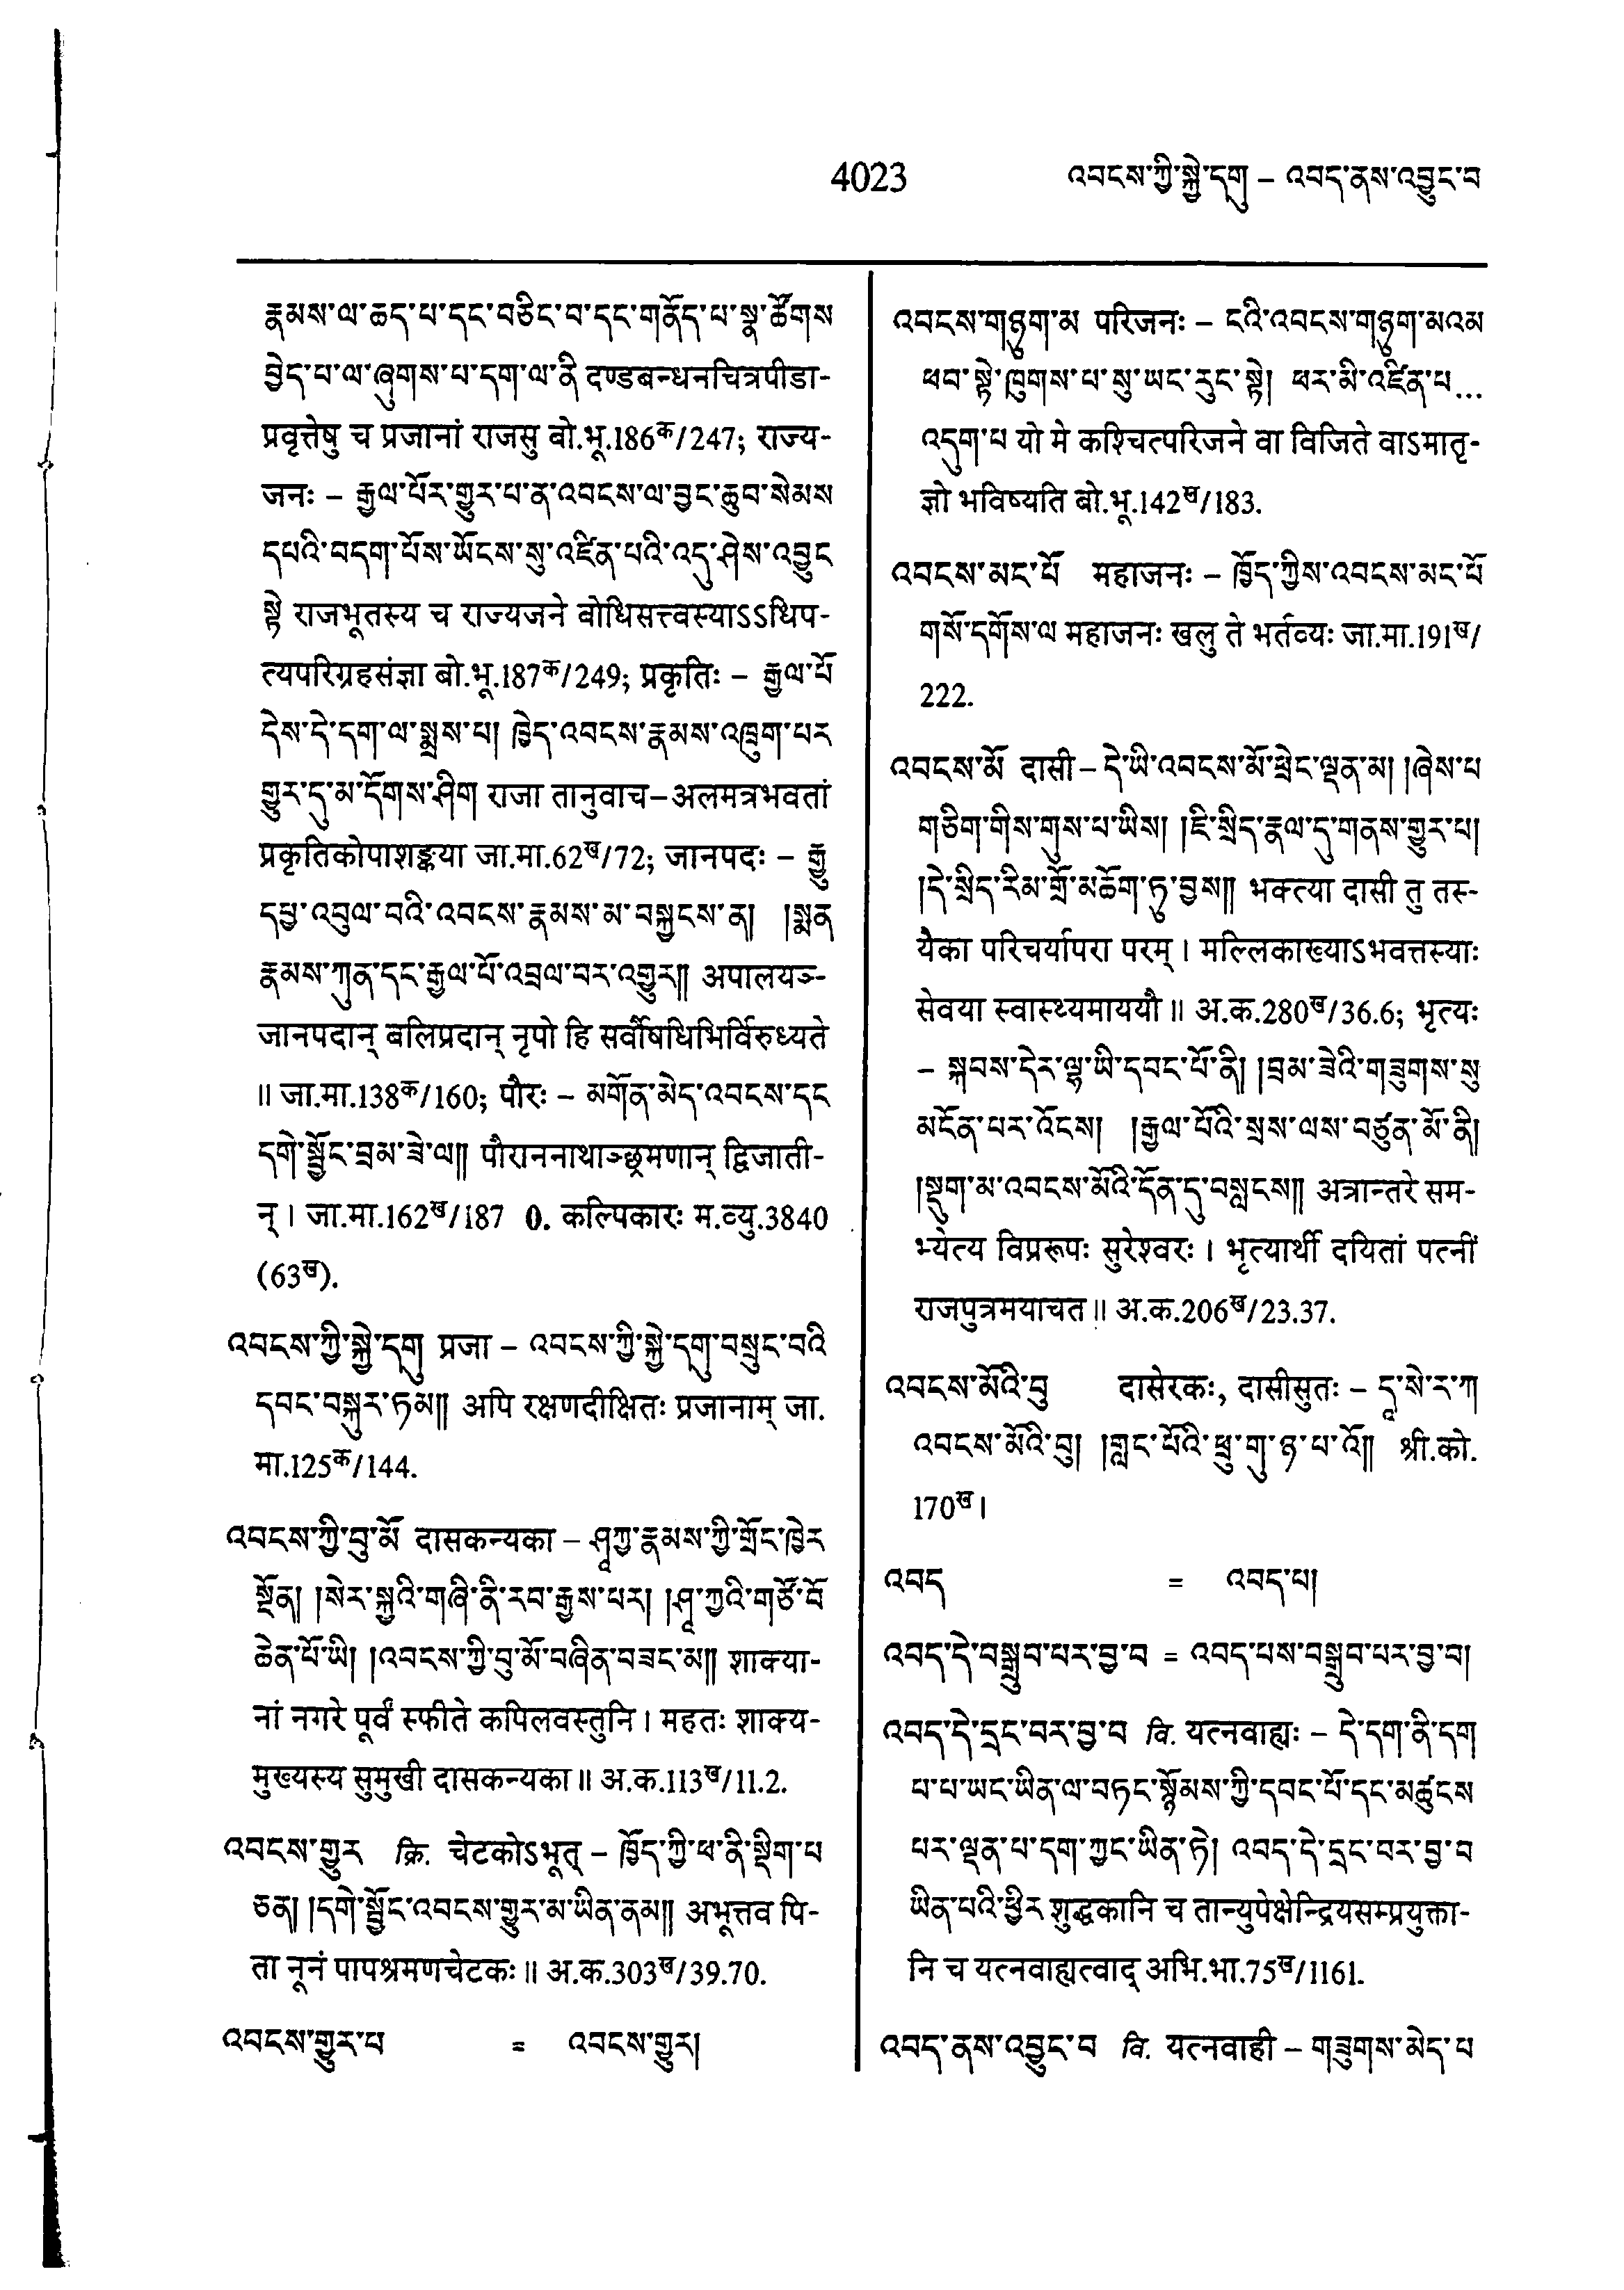 4023
འབངས་ཀྱི་སྐྱེ་དགུ – འབད་ནས་འབྱུང་བ
རྣམས་ལ་ཆད་པ་དང་བཅིང་བ་དང་གནོད་པ་སྣ་ཚོགས
བྱེད་པ་ལ་ཞུགས་པ་དག་ལ་ནི दण्डबन्धनचित्रपीडा-
प्रवृत्तेषु च प्रजानां राजसु बो.भू.186क/247; राज्य-
जनः – རྒྱལ་པོར་གྱུར་པ་ན་འབངས་ལ་བྱང་ཆུབ་སེམས
དཔའི་བདག་པོས་ཡོངས་སུ་འཛིན་པའི་འདུ་ཤེས་འབྱུང
སྟེ राजभूतस्य च राज्यजने बोधिसत्त्वस्याऽऽधिप-
त्यपरिग्रहसंज्ञा बो.भू.187क/249; प्रकृतिः – རྒྱལ་པོ
དེས་དེ་དག་ལ་སྨྲས་པ། ཁྱེད་འབངས་རྣམས་འཁྲུག་པར
གྱུར་དུ་མ་དོགས་ཤིག राजा तानुवाच–अलमत्रभवतां
प्रकृतिकोपाशङ्कया जा.मा.62ख/72; जानपदः – རྒྱུ
དཔྱ་འབུལ་བའི་འབངས་རྣམས་མ་བསྐྱངས་ན། །སྨན
རྣམས་ཀུན་དང་རྒྱལ་པོ་འབྲལ་བར་འགྱུར།། अपालयञ्-
जानपदान् बलिप्रदान् नृपो हि सर्वौषधिभिर्विरुध्यते
॥ जा.मा.138क/160; पौरः – མགོན་མེད་འབངས་དང
དགེ་སྦྱོང་བྲམ་ཟེ་ལ།། पौराननाथाञ्छ्रमणान् द्विजाती-
न् । जा.मा.162ख/187 0. कल्पिकारः म.व्यु.3840
(63ख).
འབངས་ཀྱི་སྐྱེ་དགུ प्रजा – འབངས་ཀྱི་སྐྱེ་དགུ་བསྲུང་བའི
དབང་བསྐུར་ཏམ།། अपि रक्षणदीक्षितः प्रजानाम् जा.
मा.125क/144.
འབངས་ཀྱི་བུ་མོ दासकन्यका – ཤཱཀྱ་རྣམས་ཀྱི་གྲོང་ཁྱེར
སྔོན། །སེར་སྐྱའི་གཞི་ནི་རབ་རྒྱས་པར། །ཤཱ་ཀྱའི་གཙོ་བོ
ཆེན་པོ་ཡི། །འབངས་ཀྱི་བུ་མོ་བཞིན་བཟང་མ།། शाक्या-
नां नगरे पूर्वं स्फीते कपिलवस्तुनि । महतः शाक्य-
मुख्यस्य सुमुखी दासकन्यका ॥ अ.क.113ख/11.2.
འབངས་གྱུར क्रि. चेटकोऽभूत् – ཁྱོད་ཀྱི་ཕ་ནི་སྡིག་པ
ཅན། །དགེ་སྦྱོང་འབངས་གྱུར་མ་ཡིན་ནམ།། अभूत्तव पि-
ता नूनं पापश्रमणचेटकः ॥ अ.क.303ख/39.70.
འབངས་གྱུར་པ = འབངས་གྱུར།
འབངས་གཉུག་མ परिजनः – ངའི་འབངས་གཉུག་མའམ
ཕབ་སྟེ་ཁུགས་པ་སུ་ཡང་རུང་སྟེ། ཕར་མི་འཛིན་པ...
འདུག་པ यो मे कश्चित्परिजने वा विजिते वाऽमातृ-
ज्ञो भविष्यति बो.भू.142ख/183.
འབངས་མང་པོ महाजनः – ཁྱོད་ཀྱིས་འབངས་མང་པོ
གསོ་དགོས་ལ महाजनः खलु ते भर्तव्यः जा.मा.191ख/
222.
འབངས་མོ दासी – དེ་ཡི་འབངས་མོ་ཕྲེང་ལྡན་མ། །ཞེས་པ
གཅིག་གིས་གུས་པ་ཡིས། །ཇི་སྲིད་རྣལ་དུ་གནས་གྱུར་པ།
།དེ་སྲིད་རིམ་གྲོ་མཆོག་ཏུ་བྱས།། भक्त्या दासी तु तस्-
यैका परिचर्यापरा परम् । मल्लिकाख्याऽभवत्तस्याः
सेवया स्वास्थ्यमाययौ ॥ अ.क.280ख/36.6; भृत्यः
– སྐབས་དེར་ལྷ་ཡི་དབང་པོ་ནི། །བྲམ་ཟེའི་གཟུགས་སུ
མངོན་པར་འོངས། །རྒྱལ་པོའི་སྲས་ལས་བཙུན་མོ་ནི།
།སྡུག་མ་འབངས་མོའི་དོན་དུ་བསླངས།། अत्रान्तरे सम-
भ्येत्य विप्ररूपः सुरेश्वरः । भृत्यार्थी दयितां पत्नीं
राजपुत्रमयाचत ॥ अ.क.206ख/23.37.
འབངས་མོའི་བུ दासेरकः, दासीसुतः – དཱ་སེ་ར་ཀ
འབངས་མོའི་བུ། །གླང་པོའི་ཕྲུ་གུ་ཉ་པ་འོ།། श्री.को.
170ख ।
འབད = འབད་པ།
འབད་དེ་བསྒྲུབ་པར་བྱ་བ = འབད་པས་བསྒྲུབ་པར་བྱ་བ།
འབད་དེ་དྲང་བར་བྱ་བ वि. यत्नवाह्यः – དེ་དག་ནི་དག
པ་པ་ཡང་ཡིན་ལ་བཏང་སྙོམས་ཀྱི་དབང་པོ་དང་མཚུངས
པར་ལྡན་པ་དག་ཀྱང་ཡིན་ཏེ། འབད་དེ་དྲང་བར་བྱ་བ
ཡིན་པའི་ཕྱིར शुद्धकानि च तान्युपेक्षेन्द्रियसम्प्रयुक्ता-
नि च यत्नवाह्यत्वाद् अभि.भा.75ख/1161.
འབད་ནས་འབྱུང་བ वि. यत्नवाही – གཟུགས་མེད་པ